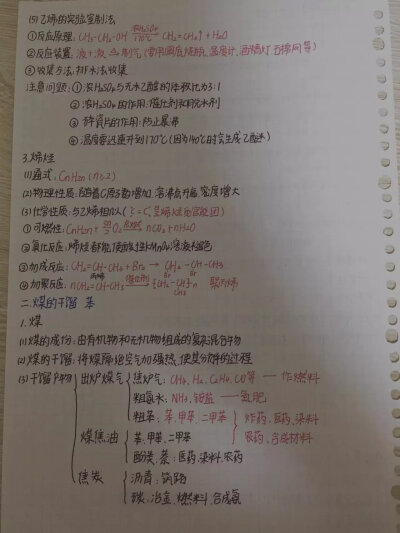 (5)乙烯的实验室制法
①反应原理: CH₃-CH₂-OH 浓H₂SO₄ 170℃ CH₂=CH₂↑+H₂O
②反应装置: 液+液 △ 制气(需用圆底烧瓶、温度计、酒精灯 石棉网等)
③收集方法: 排水法收集
注意问题: ①浓H₂SO₄与无水乙醇的体积比为3:1
②浓H₂SO₄的作用: 催化剂和脱水剂
③碎瓷片的作用: 防止暴沸
④温度要迅速升到170℃(因为140℃时会生成乙醚)
3.烯烃
(1)通式: CnH₂n (n≥2)
(2)物理性质: 随着C原子数增加, 溶沸点升高 密度增大
(3)化学性质: 与乙烯相似(C=C是烯烃的官能团)
①可燃性: CnH₂n+3n/2 O₂ 点燃 nCO₂+nH₂O
②氧化反应: 烯烃都能使酸性KMnO₄溶液褪色
③加成反应: CH₂=CH-CH₃+Br₂ → CH₂-CH-CH₃
Br Br
④加聚反应: nCH₂=CH-CH₃ 催化剂 [CH₂-CH]n 聚丙烯
丙烯 CH₃
二.煤的干馏 苯
1.煤
(1)煤的成份: 由有机物和无机物组成的复杂混合物
(2)煤的干馏: 将煤隔绝空气加强热, 使其分解的过程
(3)干馏产物 出炉煤气 焦炉气: CH₄, H₂, C₂H₄, CO等 — 作燃料
粗氨水: NH₃, 铵盐 — 氮肥
粗苯: 苯, 甲苯, 二甲苯 炸药、医药、染料
煤焦油 苯, 甲苯、二甲苯 农药、合成材料
酚类、萘: 医药、染料、农药
焦炭 沥青: 筑路
碳: 冶金、燃料、合成氨